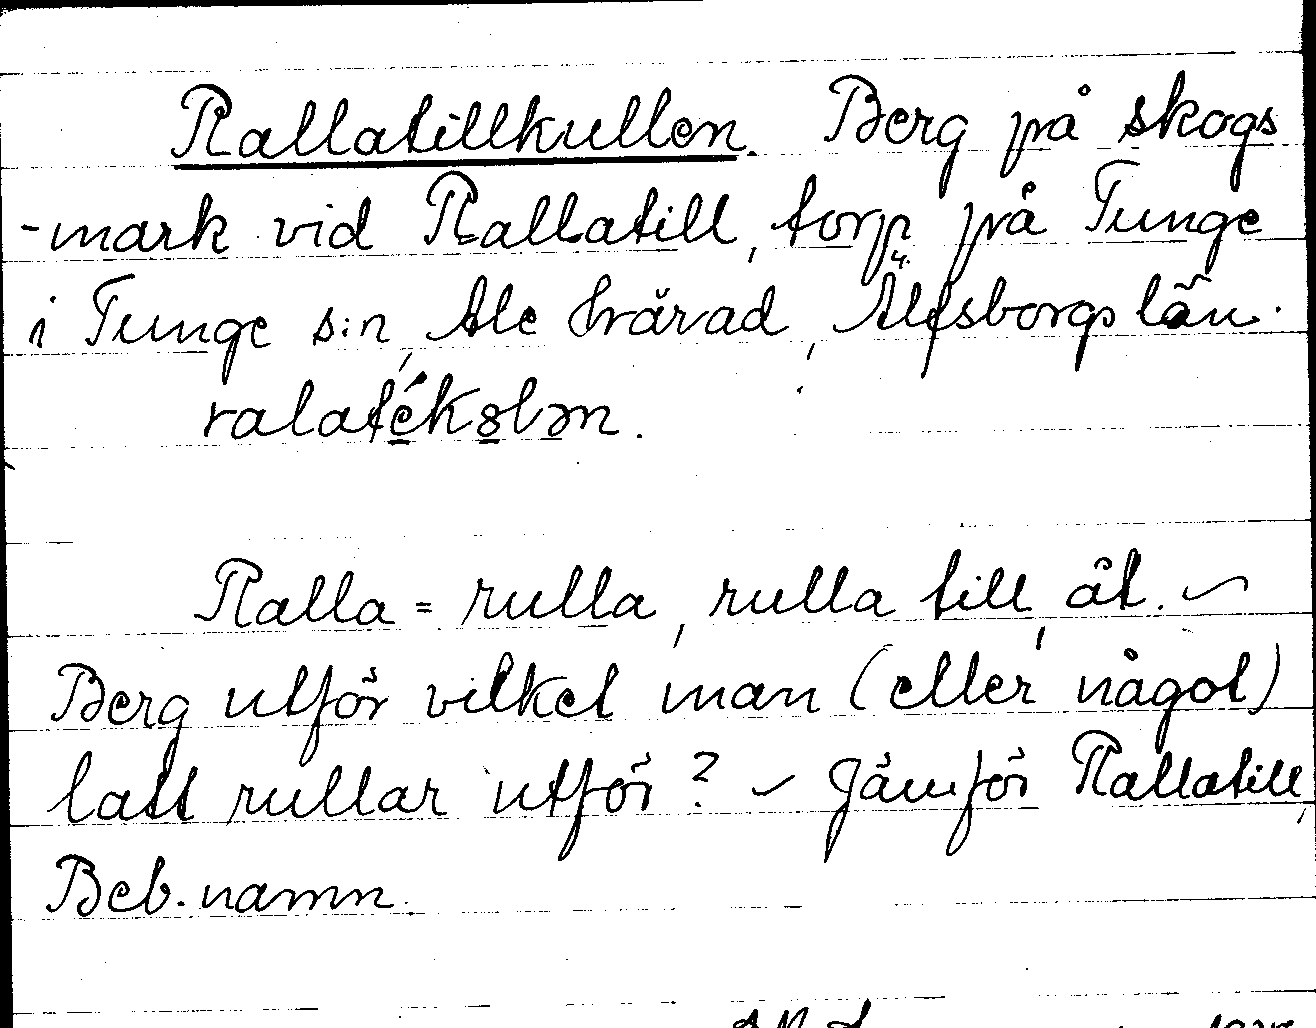 Rallatillkullen. Berg på skogs
-mark vid Rallatill, torp på Tunge
i Tunge s:n, Ale härad, Älfsborgs län.
ralatékɷlən.
Ralla = rulla, rulla till åt. ~
Berg utför vilket man (eller något)
latt rullar utför? ~ Jämför Rallatill,
Beb. namn.